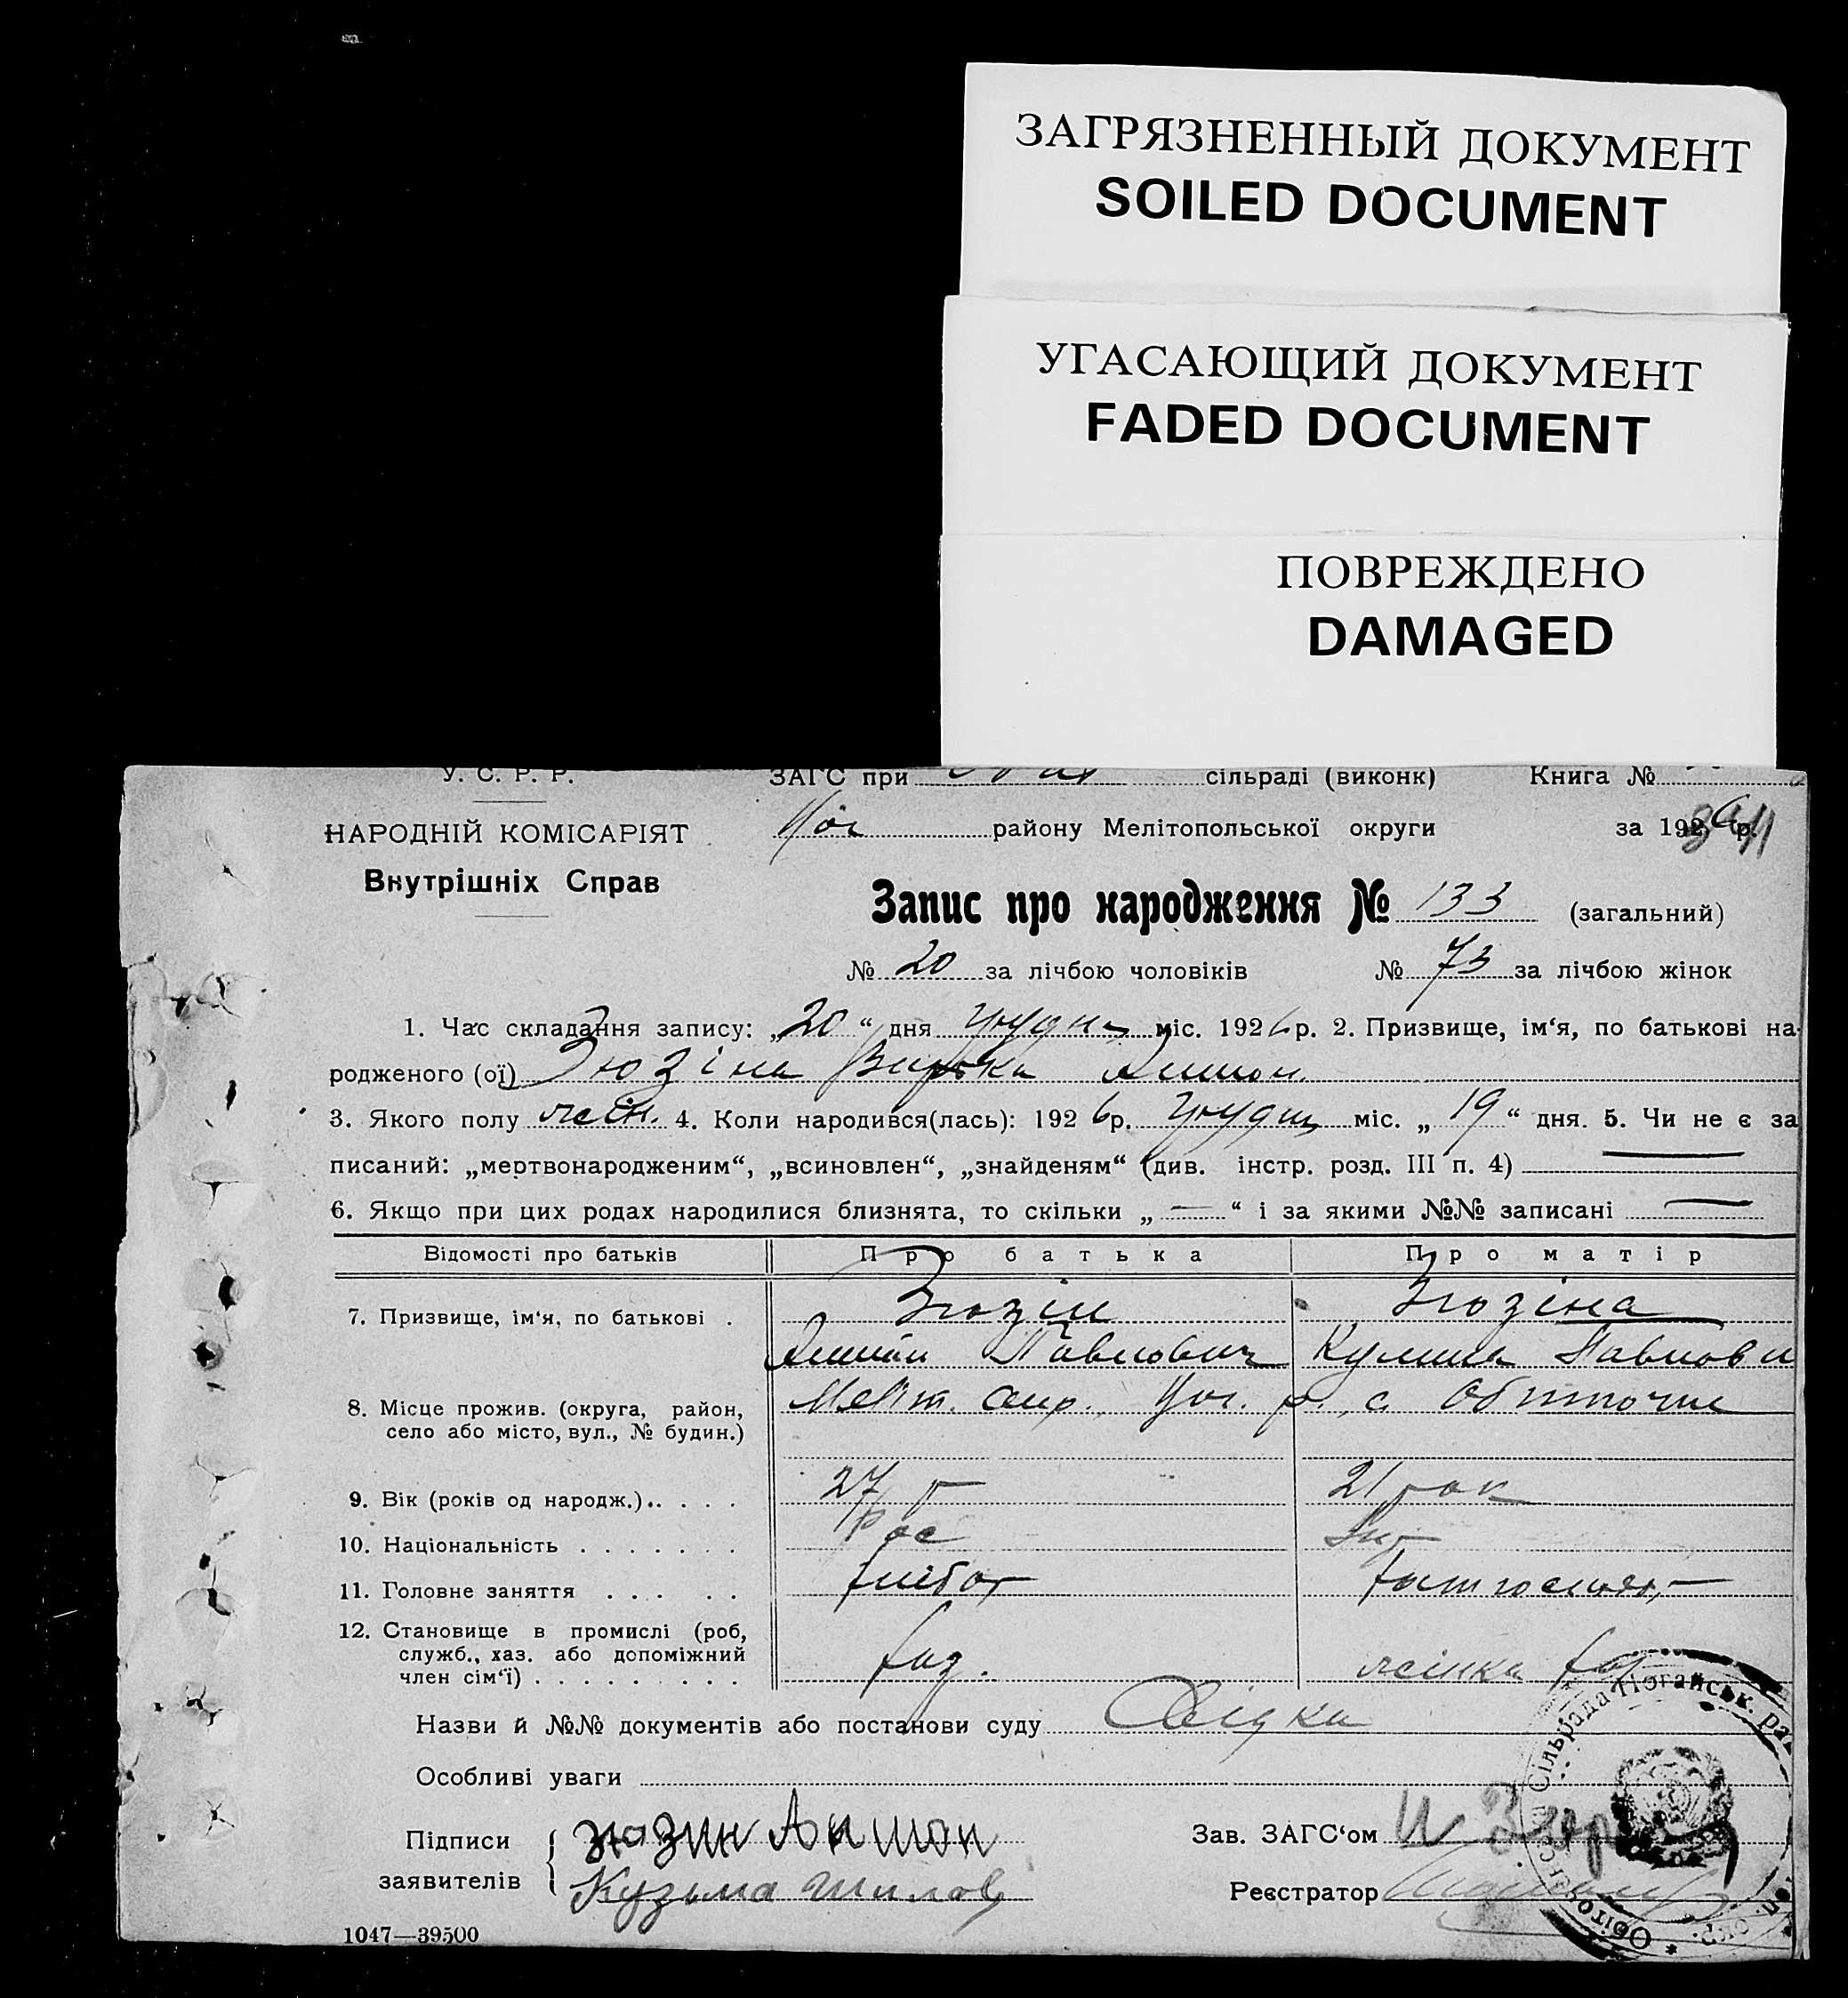 ЗАГРЯЗНЕННЫЙ ДОКУМЕНТ
SOILED DOCUMENT
УГАСАЮЩИЙ ДОКУМЕНТ
FADED DOCUMENT
ПОВРЕЖДЕНО
DAMAGED
У. С. Р. Р. ЗАГС при сільраді (виконк) Книга №
НАРОДНІЙ КОМІСАРІЯТ
Ног району Мелітопольської округи за 1926 р.
Внутрішніх Справ
Запис про народження № 133 (загальний)
№ 20 за лічбою чоловіків № 73 за лічбою жінок
1. Час складання запису: „20“ дня Грудня міс. 1926 р. 2. Призвище, ім‘я, по батькові на-
родженого (ої) Зюзіна
3. Якого полу жін. 4. Коли народився(лась): 1926 р. Грудня міс. „19“ дня. 5. Чи не є за
писаний: „мертвонародженим“, „всиновлен“, „знайденям“ (див. інстр. розд. III п. 4) —
6. Якщо при цих родах народилися близнята, то скільки „—“ і за якими №№ записані —
Відомості про батьків Про батька Про матір
7. Призвище, ім‘я, по батькові . Зюзін Зюзіна
Павлович
8. Місце прожив. (округа, район, Меліт. окр., Ног. р., с. Обиточне
село або місто, вул., № будин.)
9. Вік (років од народж.) . . . . 27 р 21 рок
10. Національність . . . . . . . Рос
11. Головне заняття . . . . . хлібор
12. Становище в промислі (роб, служб., хаз. або допоміжний член сім‘ї) . . . . . . . . . хаз. жінка хаз
Назви й №№ документів або постанови суду
Особливі уваги
Підписи зюзин Зав. ЗАГС‘ом
заявителів Кузьма Шилов Реєстратор
Сільрада Ногайськ. ра
1047—39500